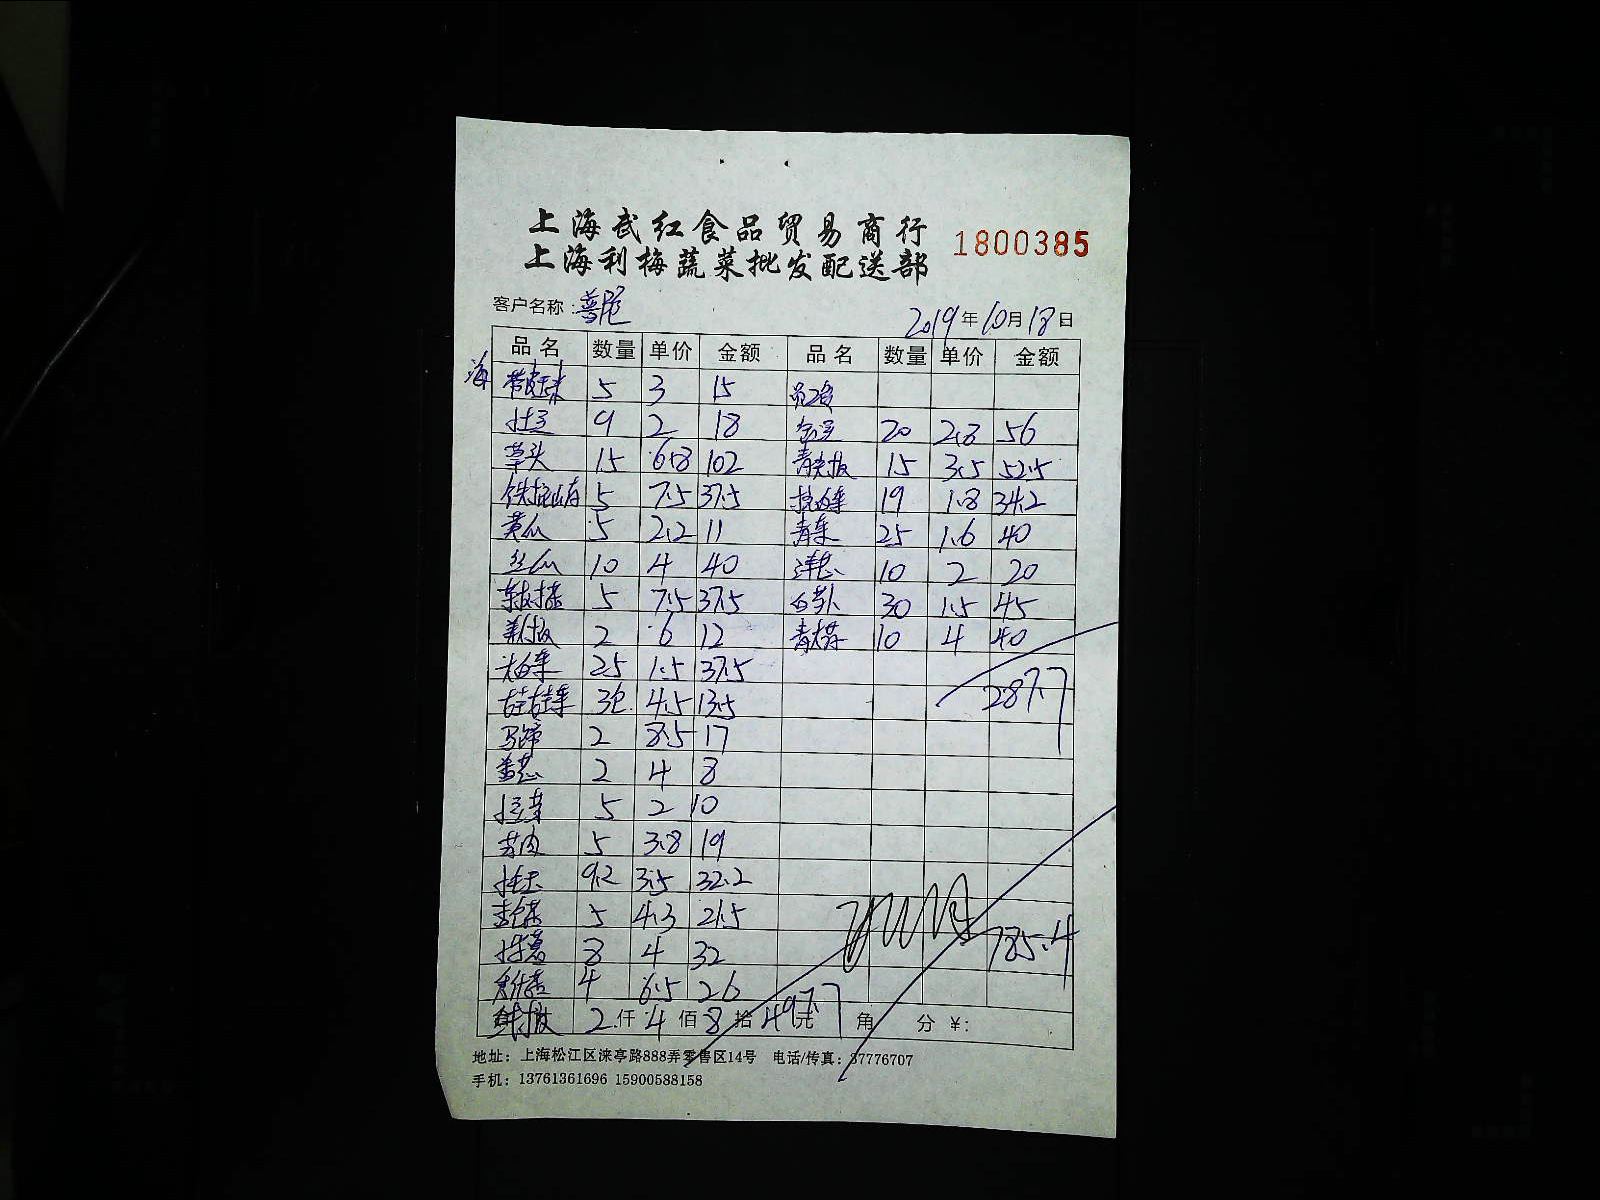 上海武红食品贸易商行
上海利梅蔬菜批发配送部
1800385
客户名称:
2019年10月18日
品名 数量 单价 金额 品名 数量 单价 金额
海 带皮玉米 5 3 15
9 2 18 20 2.8 56
草头 15 6.8 102 青尖椒 15 3.5 52.5
铁棍山药 5 7.5 37.5 19 1.8 34.2
黄瓜 5 2.2 11 青菜 25 1.6 40
丝瓜 10 4 40 洋葱 10 2 20
5 7.5 37.5 白萝卜 30 1.5 45
美人椒 2 6 12 青大蒜 10 4 40
大白菜 25 1.5 37.5
娃娃菜 3包 4.5 13.5 287.7
马蹄 2 8.5 17
2 4 8
5 2 10
5 3.8 19
9.2 3.5 32.2
5 4.3 21.5 785.4
8 4 32
4 6.5 26
2 仟 4 佰 8 拾 元 角 分 ¥: 497.7
地址：上海松江区涞亭路888弄零售区14号 电话/传真：37776707
手机：13761361696 15900588158